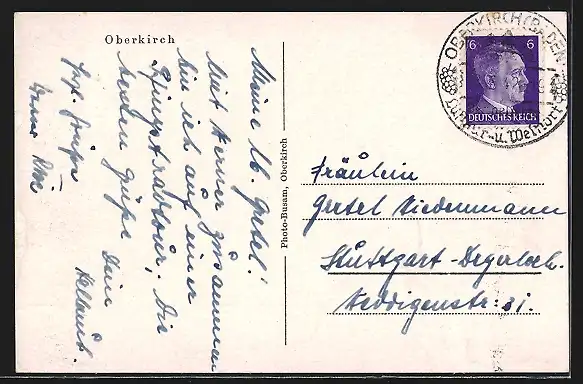 Oberkirch
Meine lb. Gretel!
Mit Werner zusammen
bin ich auf einer
Pfingstradtour. Die
besten Grüße
Dein
Hellmut.
Hzl. Grüße
Werner
Photo-Busam, Oberkirch
OBERKIRCH (BADEN)
6 6
DEUTSCHES REICH
u. Weinort
Fräulein
Gretel Niedermann
Stuttgart-Degerloch.
Neddigenstr: 31.